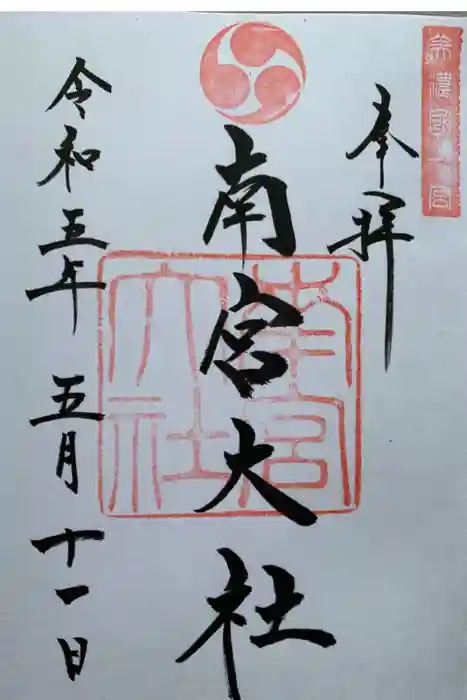 美濃國一宮
奉拝
南宮大社
南宮大社
令和五年五月十一日